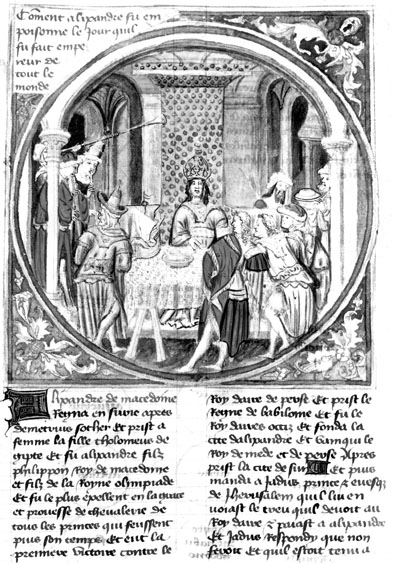 Coment alixandre fu em
poisonne le jour quil
fu fait empe
reur de
tout le
monde
Alixandre de macedoine
Regna en surie apres
demetrius sother Et prist a
femme la fille tholomeus de
gipte Et fu alixandre filz
philippon Roy de macedoine
et filz de la Royne olimpiade
Et fu le plus excellent en la grace
et prouesse de chevalerie de
tous les princes qui feussent
puis son temps Et eut la
premiere victoire contre le
Roy daire de perse Et prist le
Regne de babilonne Et fu le
Roy daires occiz Et fonda la
cite dalixandre Et vainqui le
Roy de mede et de perse Apres
prist la cite de sur Et puis
manda a Jadus prince et evesq
de Jherusalem quil lui en
voiast le treu quil devoit au
Roy daire et paiast a alixandre
Et Jadus Respondy que non
feroit Et quil estoit tenu a